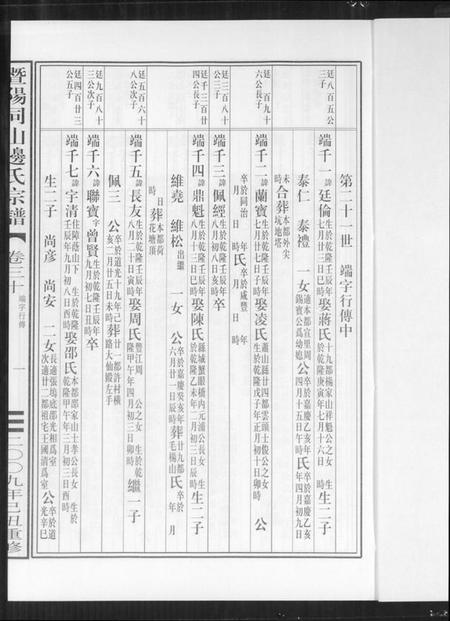 第二十一世 端字行傳中
廷八百五公三子
端千一諱廷倫生於乾隆壬辰年七月廿三日巳時娶蔣氏十九都楊家山祥魁公之女生於乾隆庚寅年七月十六日 時生二子
泰仁 泰禮 一女適本都宜里周錫賓公爲幼媳公卒於嘉慶乙亥年四月十五日 時氏卒於嘉慶乙亥年四月初九日
未時合葬本都外尖坑地塔
廷一百九十六公長子
端千二諱蘭寶生於乾隆壬辰年七月廿日子時娶凌氏蕭山縣廿四都雲頭士俊公之女生於乾隆戊子年正月初十日卯時 公
卒於同治 年 月 日 時氏卒於咸豐 年 月 日 時
廷三百八十公三子
端千三諱佩經生於乾隆壬辰年八月初八日亥時卒
廷千三百廿四公長子
端千四諱鼎魁生於乾隆壬辰年八月十三日巳時娶陳氏縣城蟹眼橋內元浦公長女生於乾隆乙未年二月初三日辰時生二子
維堯 維松出繼 一女 公卒於嘉慶癸亥年六月廿一日辰時葬廿九都毛楊山氏卒於 年 月
日 時葬本都荷花塘頂
廷五百六十八公次子
端千五諱長友生於乾隆壬辰年八月二十日寅時娶周氏豐江周 公之女 生於乾隆甲午年四月初三日卯時繼一子
佩三 公卒於道光十九年己亥二月廿五日未時葬廿一都許村橫路大仙殿左手
廷九百八十三公次子
端千六諱聯寶字曾賢生於乾隆壬辰年九月初七日丑時卒
廷四百廿三公五子
端千七諱宇清住陸蔭山下 生於乾隆壬辰年九月初八日酉時娶邵氏本都邵家山士孝公長女 生於乾隆甲午年三月初三日酉時
生二子 尚彥 尚安 二女長適張塢底邵光相爲室次適廿二都祖宅王國清爲室公卒於道光辛巳
暨陽同山邊氏宗譜
卷三十 端字行傳
一
二〇〇九年己丑重修